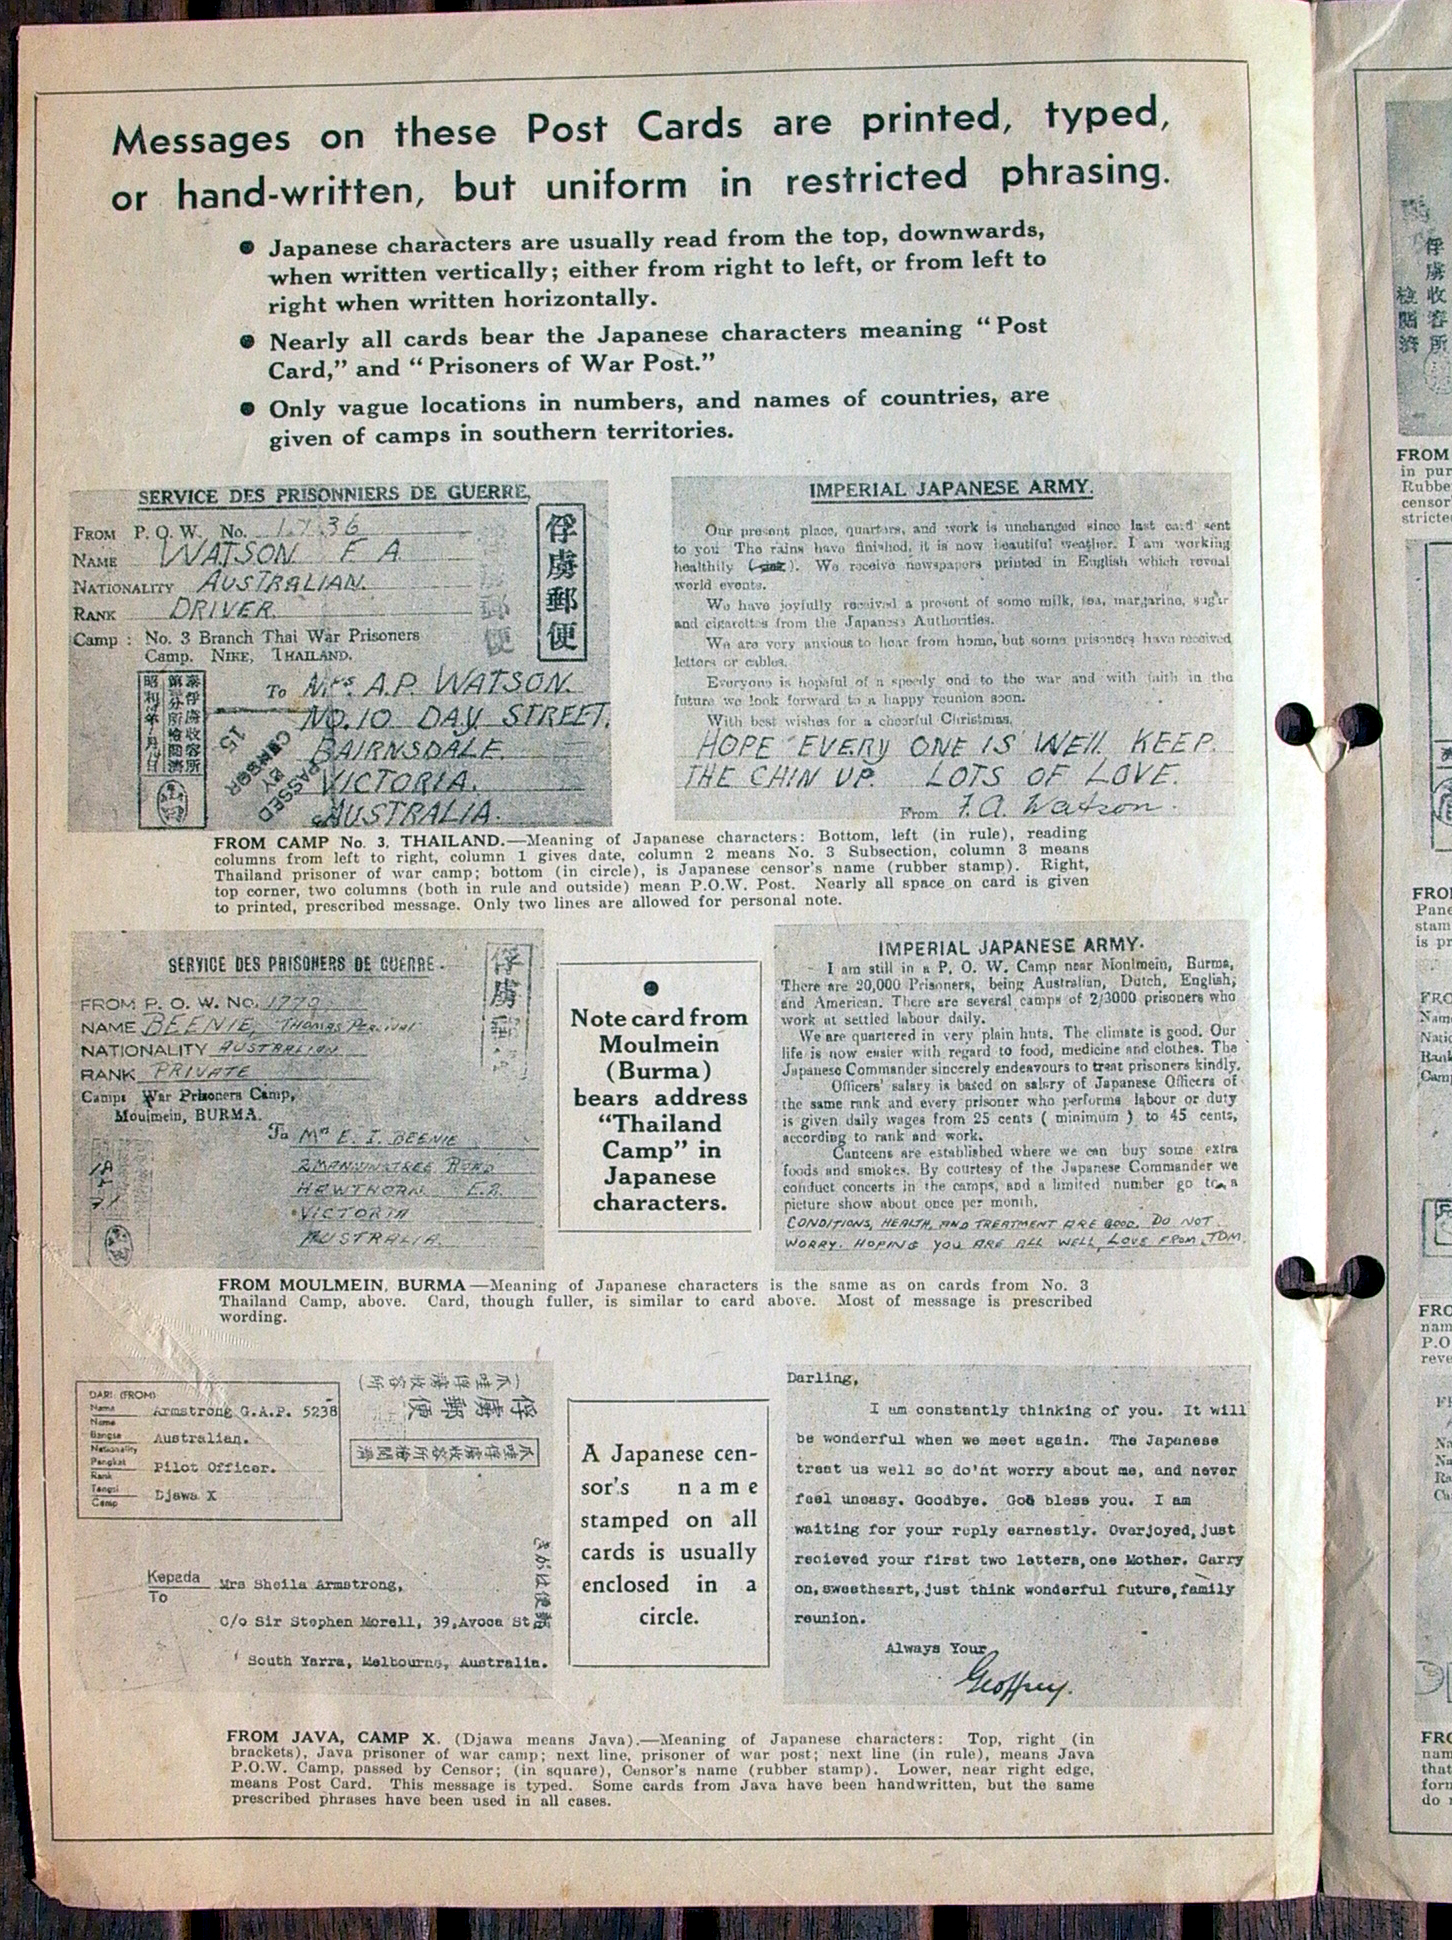 Messages on these Post Cards are printed, typed,
or hand-written, but uniform in restricted phrasing.
● Japanese characters are usually read from the top, downwards,
when written vertically; either from right to left, or from left to
right when written horizontally.
● Nearly all cards bear the Japanese characters meaning “Post
Card,” and “Prisoners of War Post.”
● Only vague locations in numbers, and names of countries, are
given of camps in southern territories.
SERVICE DES PRISONNIERS DE GUERRE.
FROM P. O. W. No. 1736
NAME WATSON F A
NATIONALITY AUSTRALIAN.
RANK DRIVER
Camp : No. 3 Branch Thai War Prisoners
Camp. NIKE, THAILAND.
俘虜郵便
To Mrs A.P. WATSON.
NO. 10 DAY STREET.
BAIRNSDALE.
VICTORIA.
AUSTRALIA.
PASSED
BY
CENSOR
15
IMPERIAL JAPANESE ARMY.
Our present place, quarters, and work is unchanged since last card sent
to you The rains have finished, it is now beautiful weather. I am working
healthily We receive newspapers printed in English which reveal
world events.
We have joyfully received a present of some milk, tea, margarine, sugar
and cigarettes from the Japanese Authorities.
We are very anxious to hear from home, but some prisoners have received
letters or cables.
Everyone is hopeful of a speedy end to the war and with faith in the
future we look forward to a happy reunion soon.
With best wishes for a cheerful Christmas.
HOPE EVERY ONE IS WELL KEEP.
THE CHIN UP. LOTS OF LOVE.
From F.A. Watson.
FROM CAMP No. 3, THAILAND.—Meaning of Japanese characters: Bottom, left (in rule), reading
columns from left to right, column 1 gives date, column 2 means No. 3 Subsection, column 3 means
Thailand prisoner of war camp; bottom (in circle), is Japanese censor's name (rubber stamp). Right,
top corner, two columns (both in rule and outside) mean P.O.W. Post. Nearly all space on card is given
to printed, prescribed message. Only two lines are allowed for personal note.
SERVICE DES PRISONERS DE GUERRE.
FROM P. O. W. NO. 1779
NAME BEENIE, THOMAS PERCIVAL
NATIONALITY AUSTRALIAN
RANK PRIVATE
Camp: War Prisoners Camp,
Moulmein, BURMA.
To Mrs E. I. BEENIE
ROAD
HAWTHORN E.2.
VICTORIA
AUSTRALIA.
●
Note card from
Moulmein
(Burma)
bears address
“Thailand
Camp” in
Japanese
characters.
IMPERIAL JAPANESE ARMY.
I am still in a P. O. W. Camp near Moulmein, Burma,
There are 20,000 Prisoners, being Australian, Dutch, English,
and American. There are several camps of 2/3000 prisoners who
work at settled labour daily.
We are quartered in very plain huts. The climate is good. Our
life is now easier with regard to food, medicine and clothes. The
Japanese Commander sincerely endeavours to treat prisoners kindly.
Officers' salary is based on salary of Japanese Officers of
the same rank and every prisoner who performs labour or duty
is given daily wages from 25 cents ( minimum ) to 45 cents,
according to rank and work.
Canteens are established where we can buy some extra
foods and smokes. By courtesy of the Japanese Commander we
conduct concerts in the camps, and a limited number go to a
picture show about once per month.
CONDITIONS, HEALTH, AND TREATMENT ARE GOOD. DO NOT
WORRY. HOPING YOU ARE ALL WELL, LOVE FROM, TOM.
FROM MOULMEIN, BURMA—Meaning of Japanese characters is the same as on cards from No. 3
Thailand Camp, above. Card, though fuller, is similar to card above. Most of message is prescribed
wording.
DARI (FROM)
Nama
Name
Armstrong G.A.P. 5238
Bangsa
Nationality
Australian.
Pangkat
Rank
Pilot Officer.
Tangsi
Camp
Djawa X
俘虜郵便
Kepada
To
Mrs Sheila Armstrong,
C/o Sir Stephen Morell, 39,Avoca St
South Yarra, Melbourne, Australia.
A Japanese cen-
sor's name
stamped on all
cards is usually
enclosed in a
circle.
Darling,
I am constantly thinking of you. It will
be wonderful when we meet again. The Japanese
treat us well so do'nt worry about me, and never
feel uneasy. Goodbye. God bless you. I am
waiting for your reply earnestly. Overjoyed,just
recieved your first two letters,one Mother. Carry
on,sweetheart,just think wonderful future,family
reunion.
Always Your
Geoffrey.
FROM JAVA, CAMP X. (Djawa means Java).—Meaning of Japanese characters: Top, right (in
brackets), Java prisoner of war camp; next line, prisoner of war post; next line (in rule), means Java
P.O.W. Camp, passed by Censor; (in square), Censor's name (rubber stamp). Lower, near right edge,
means Post Card. This message is typed. Some cards from Java have been handwritten, but the same
prescribed phrases have been used in all cases.